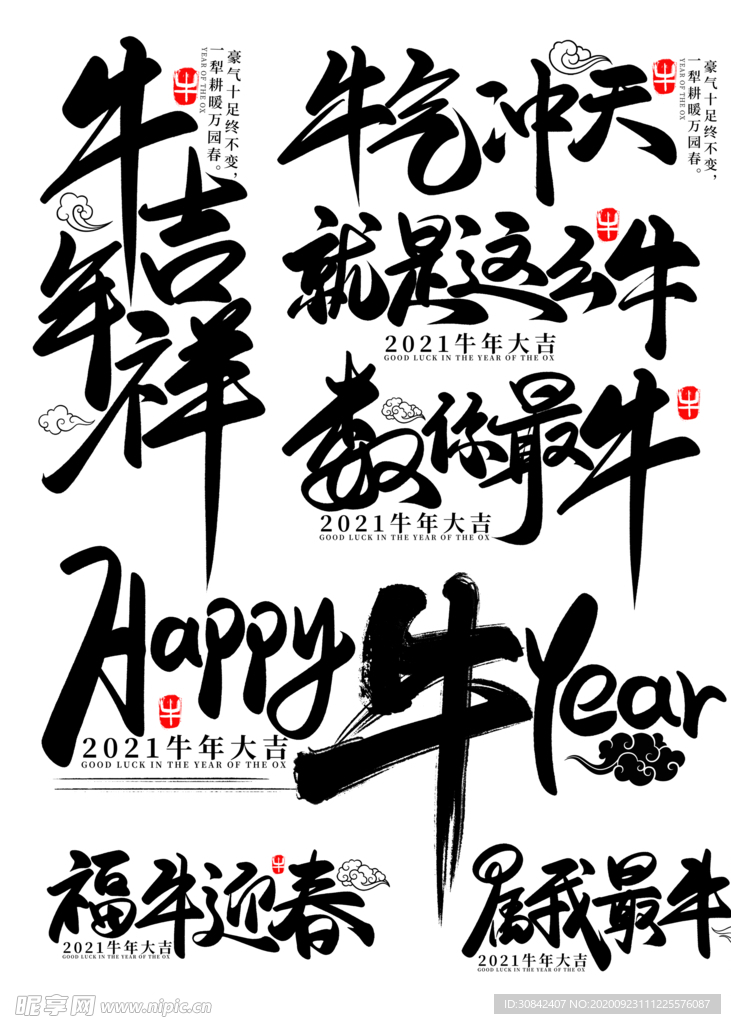 牛年吉祥
牛
豪气十足终不变，
一犁耕暖万园春。
YEAR OF THE OX
牛气冲天
牛
豪气十足终不变，
一犁耕暖万园春。
YEAR OF THE OX
就是这么牛
牛
2021牛年大吉
GOOD LUCK IN THE YEAR OF THE OX
数你最牛
牛
2021牛年大吉
GOOD LUCK IN THE YEAR OF THE OX
Happy牛Year
牛
2021牛年大吉
GOOD LUCK IN THE YEAR OF THE OX
福牛迎春
牛
2021牛年大吉
GOOD LUCK IN THE YEAR OF THE OX
属我最牛
2021牛年大吉
GOOD LUCK IN THE YEAR OF THE OX
昵享网 www.nipic.cn
ID:30842407 NO:20200923111225576087